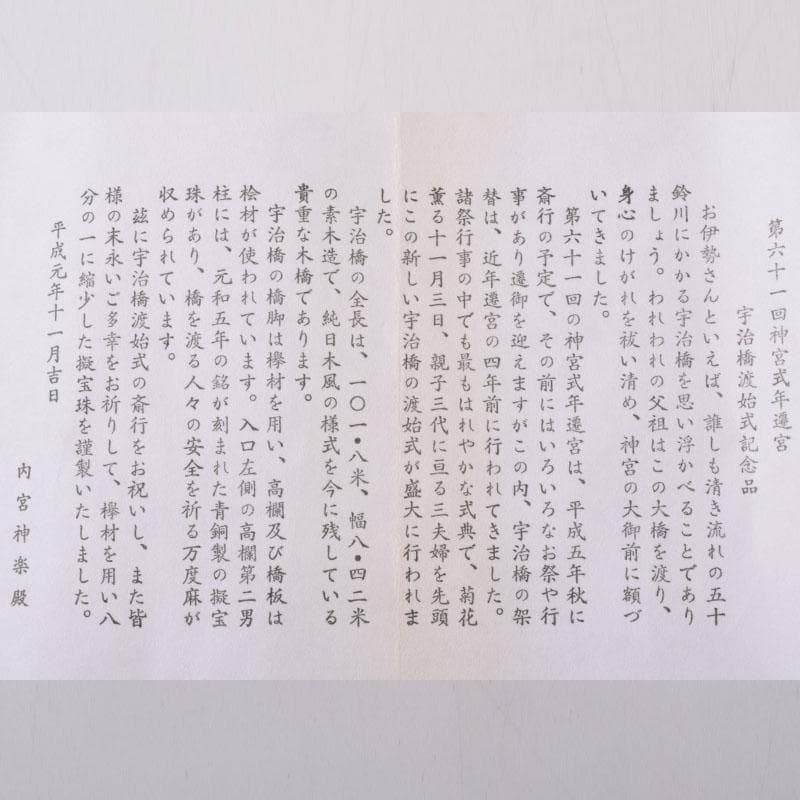 第六十一回神宮式年遷宮
宇治橋渡始式記念品
お伊勢さんといえば、誰しも清き流れの五十
鈴川にかかる宇治橋を思い浮かべることであり
ましょう。われわれの父祖はこの大橋を渡り、
身心のけがれを祓い清め、神宮の大御前に額づ
いてきました。
第六十一回の神宮式年遷宮は、平成五年秋に
斎行の予定で、その前にはいろいろなお祭や行
事があり遷御を迎えますがこの内、宇治橋の架
替は、近年遷宮の四年前に行われてきました。
諸祭行事の中でも最もはれやかな式典で、菊花
薫る十一月三日、親子三代に亘る三夫婦を先頭
にこの新しい宇治橋の渡始式が盛大に行われま
した。
宇治橋の全長は、一〇一・八米、幅八・四二米
の素木造で、純日木風の様式を今に残している
貴重な木橋であります。
宇治橋の橋脚は欅材を用い、高欄及び橋板は
桧材が使われています。入口左側の高欄第二男
柱には、元和五年の銘が刻まれた青銅製の擬宝
珠があり、橋を渡る人々の安全を祈る万度麻が
収められています。
茲に宇治橋渡始式の斎行をお祝いし、また皆
様の末永いご多幸をお祈りして、欅材を用い八
分の一に縮少した擬宝珠を謹製いたしました。
平成元年十一月吉日
内宮神楽殿